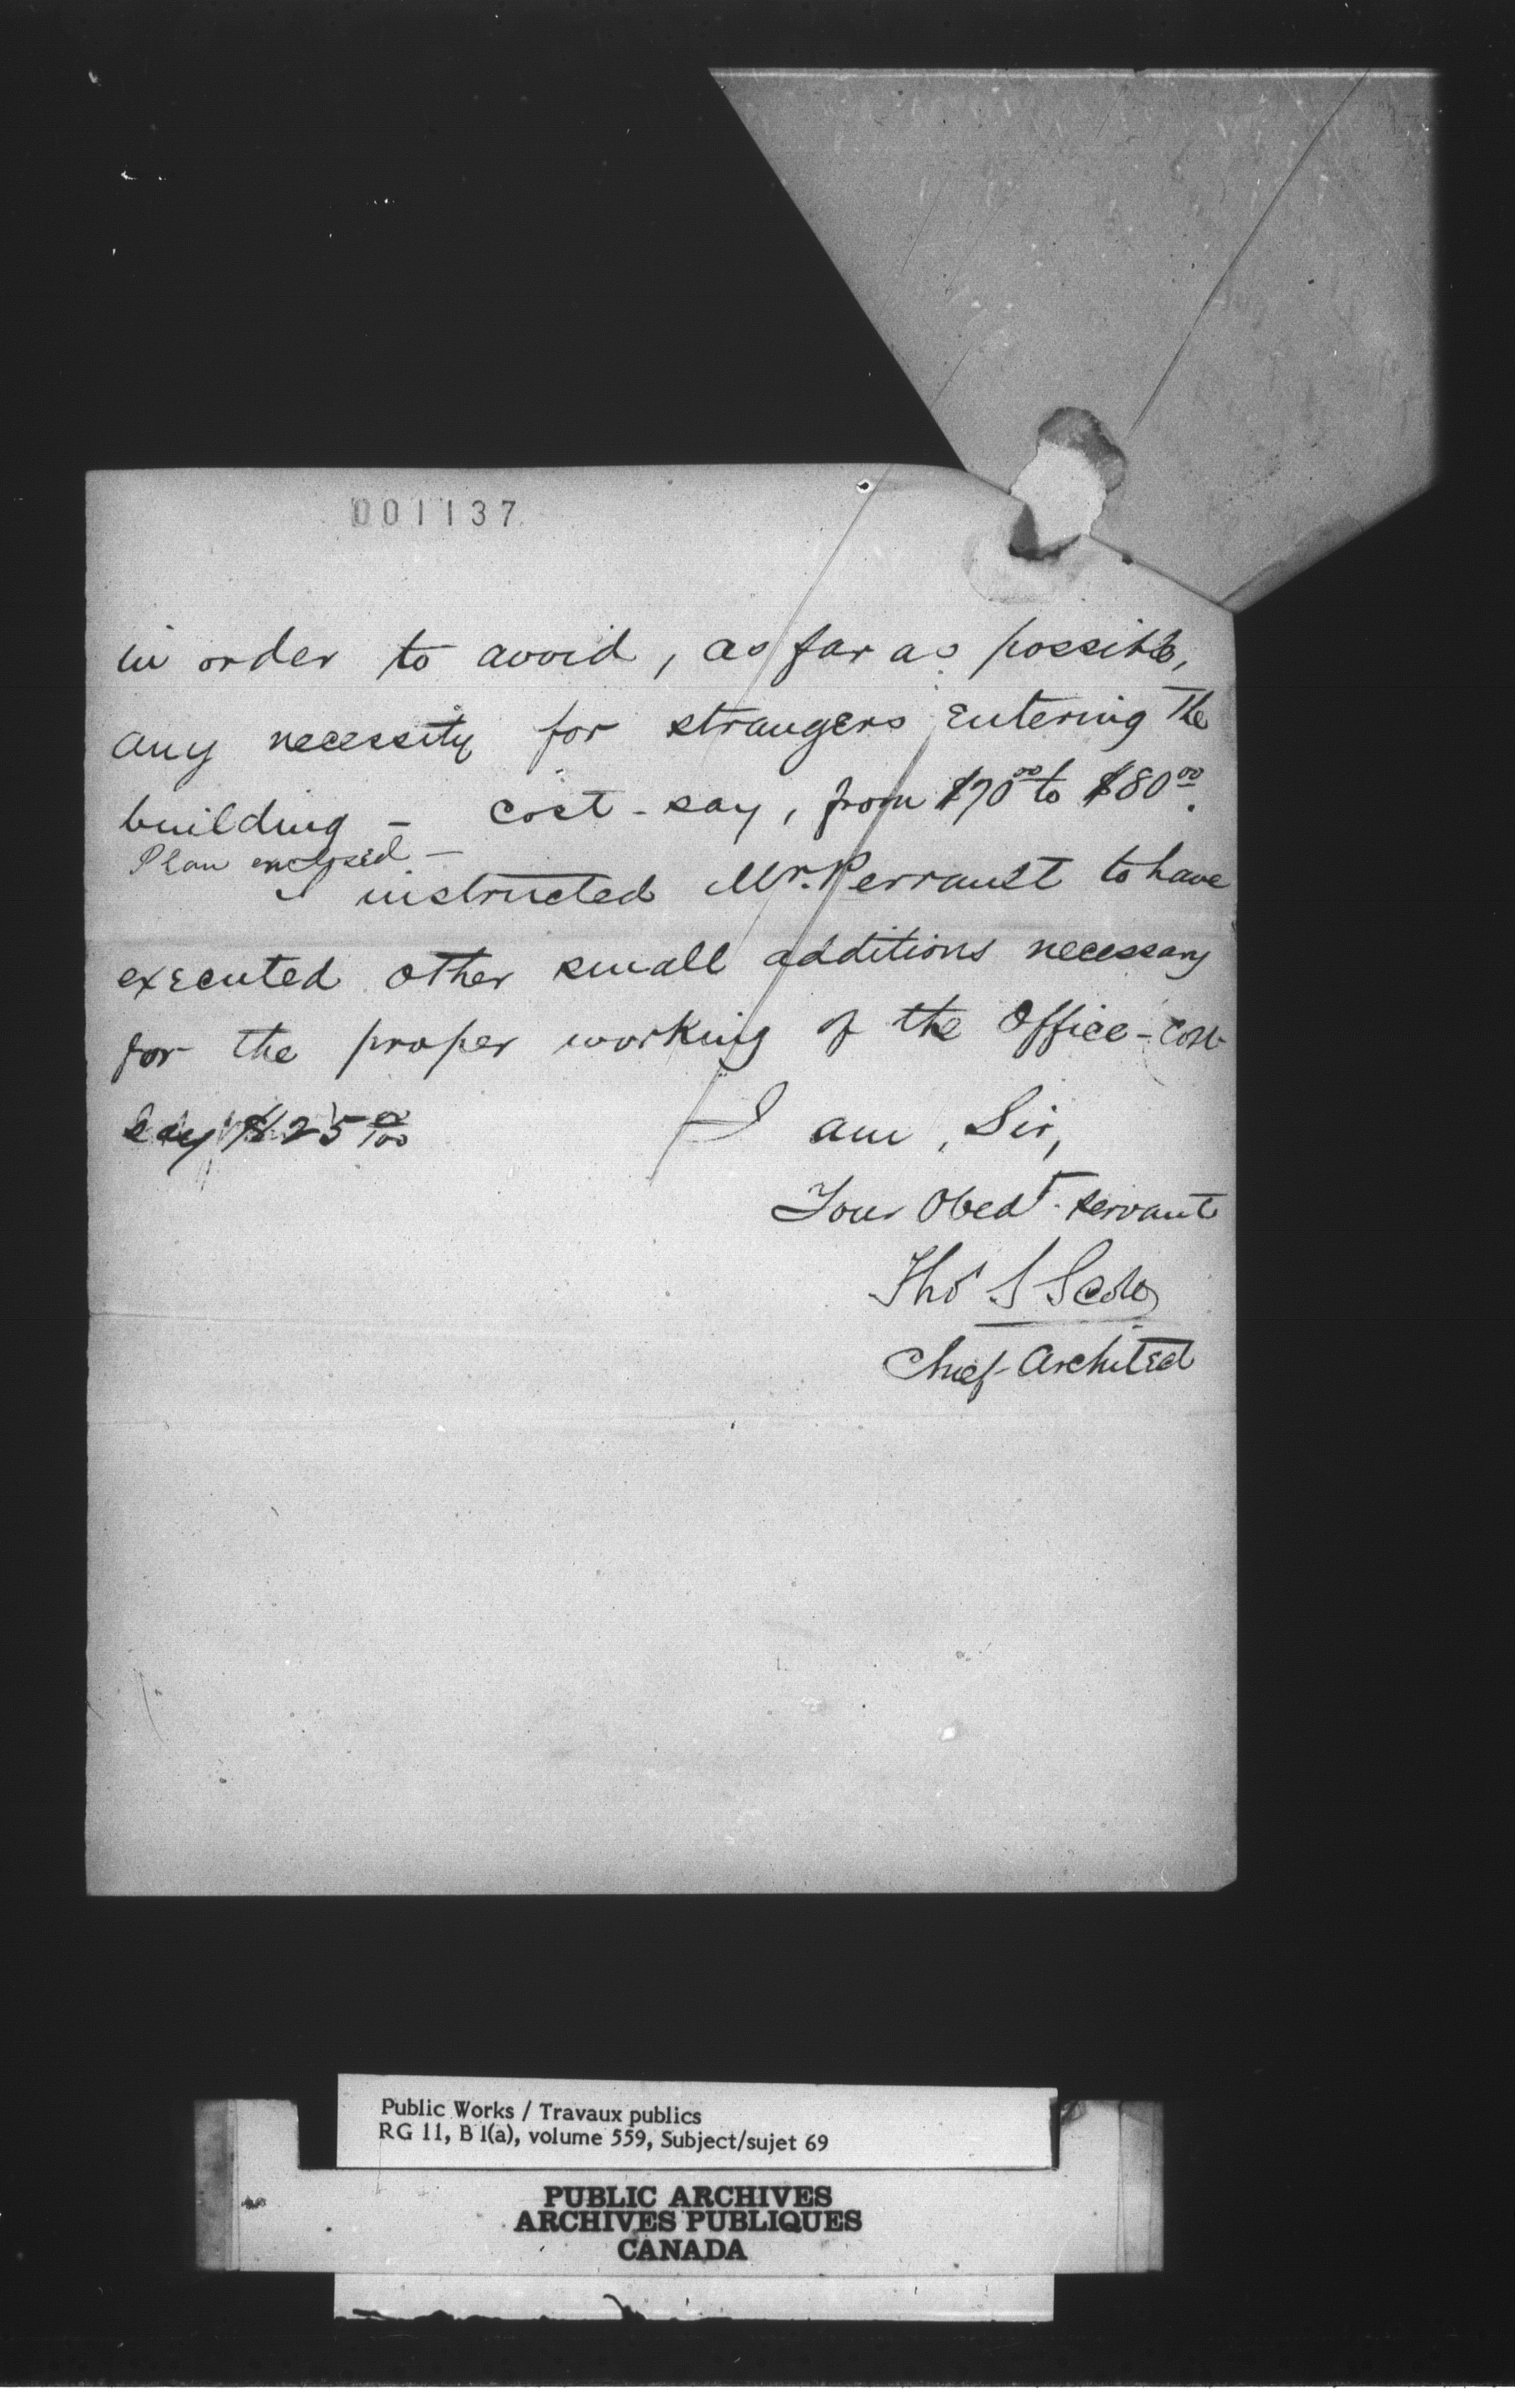 001137
in order to avoid, as far as possible,
any necessity for strangers entering the
building – cost - say, from $70⁰⁰ to $80⁰⁰.
Plan enclosed –
I instructed Mr. Perrault to have
executed other small additions necessary
for the proper working of the Office - cost
say $125 00/100
I am, Sir,
Your Obedt. servant
Thos S Scott
Chief Architect
Public Works / Travaux publics
RG 11, B 1(a), volume 559, Subject/sujet 69
PUBLIC ARCHIVES
ARCHIVES PUBLIQUES
CANADA